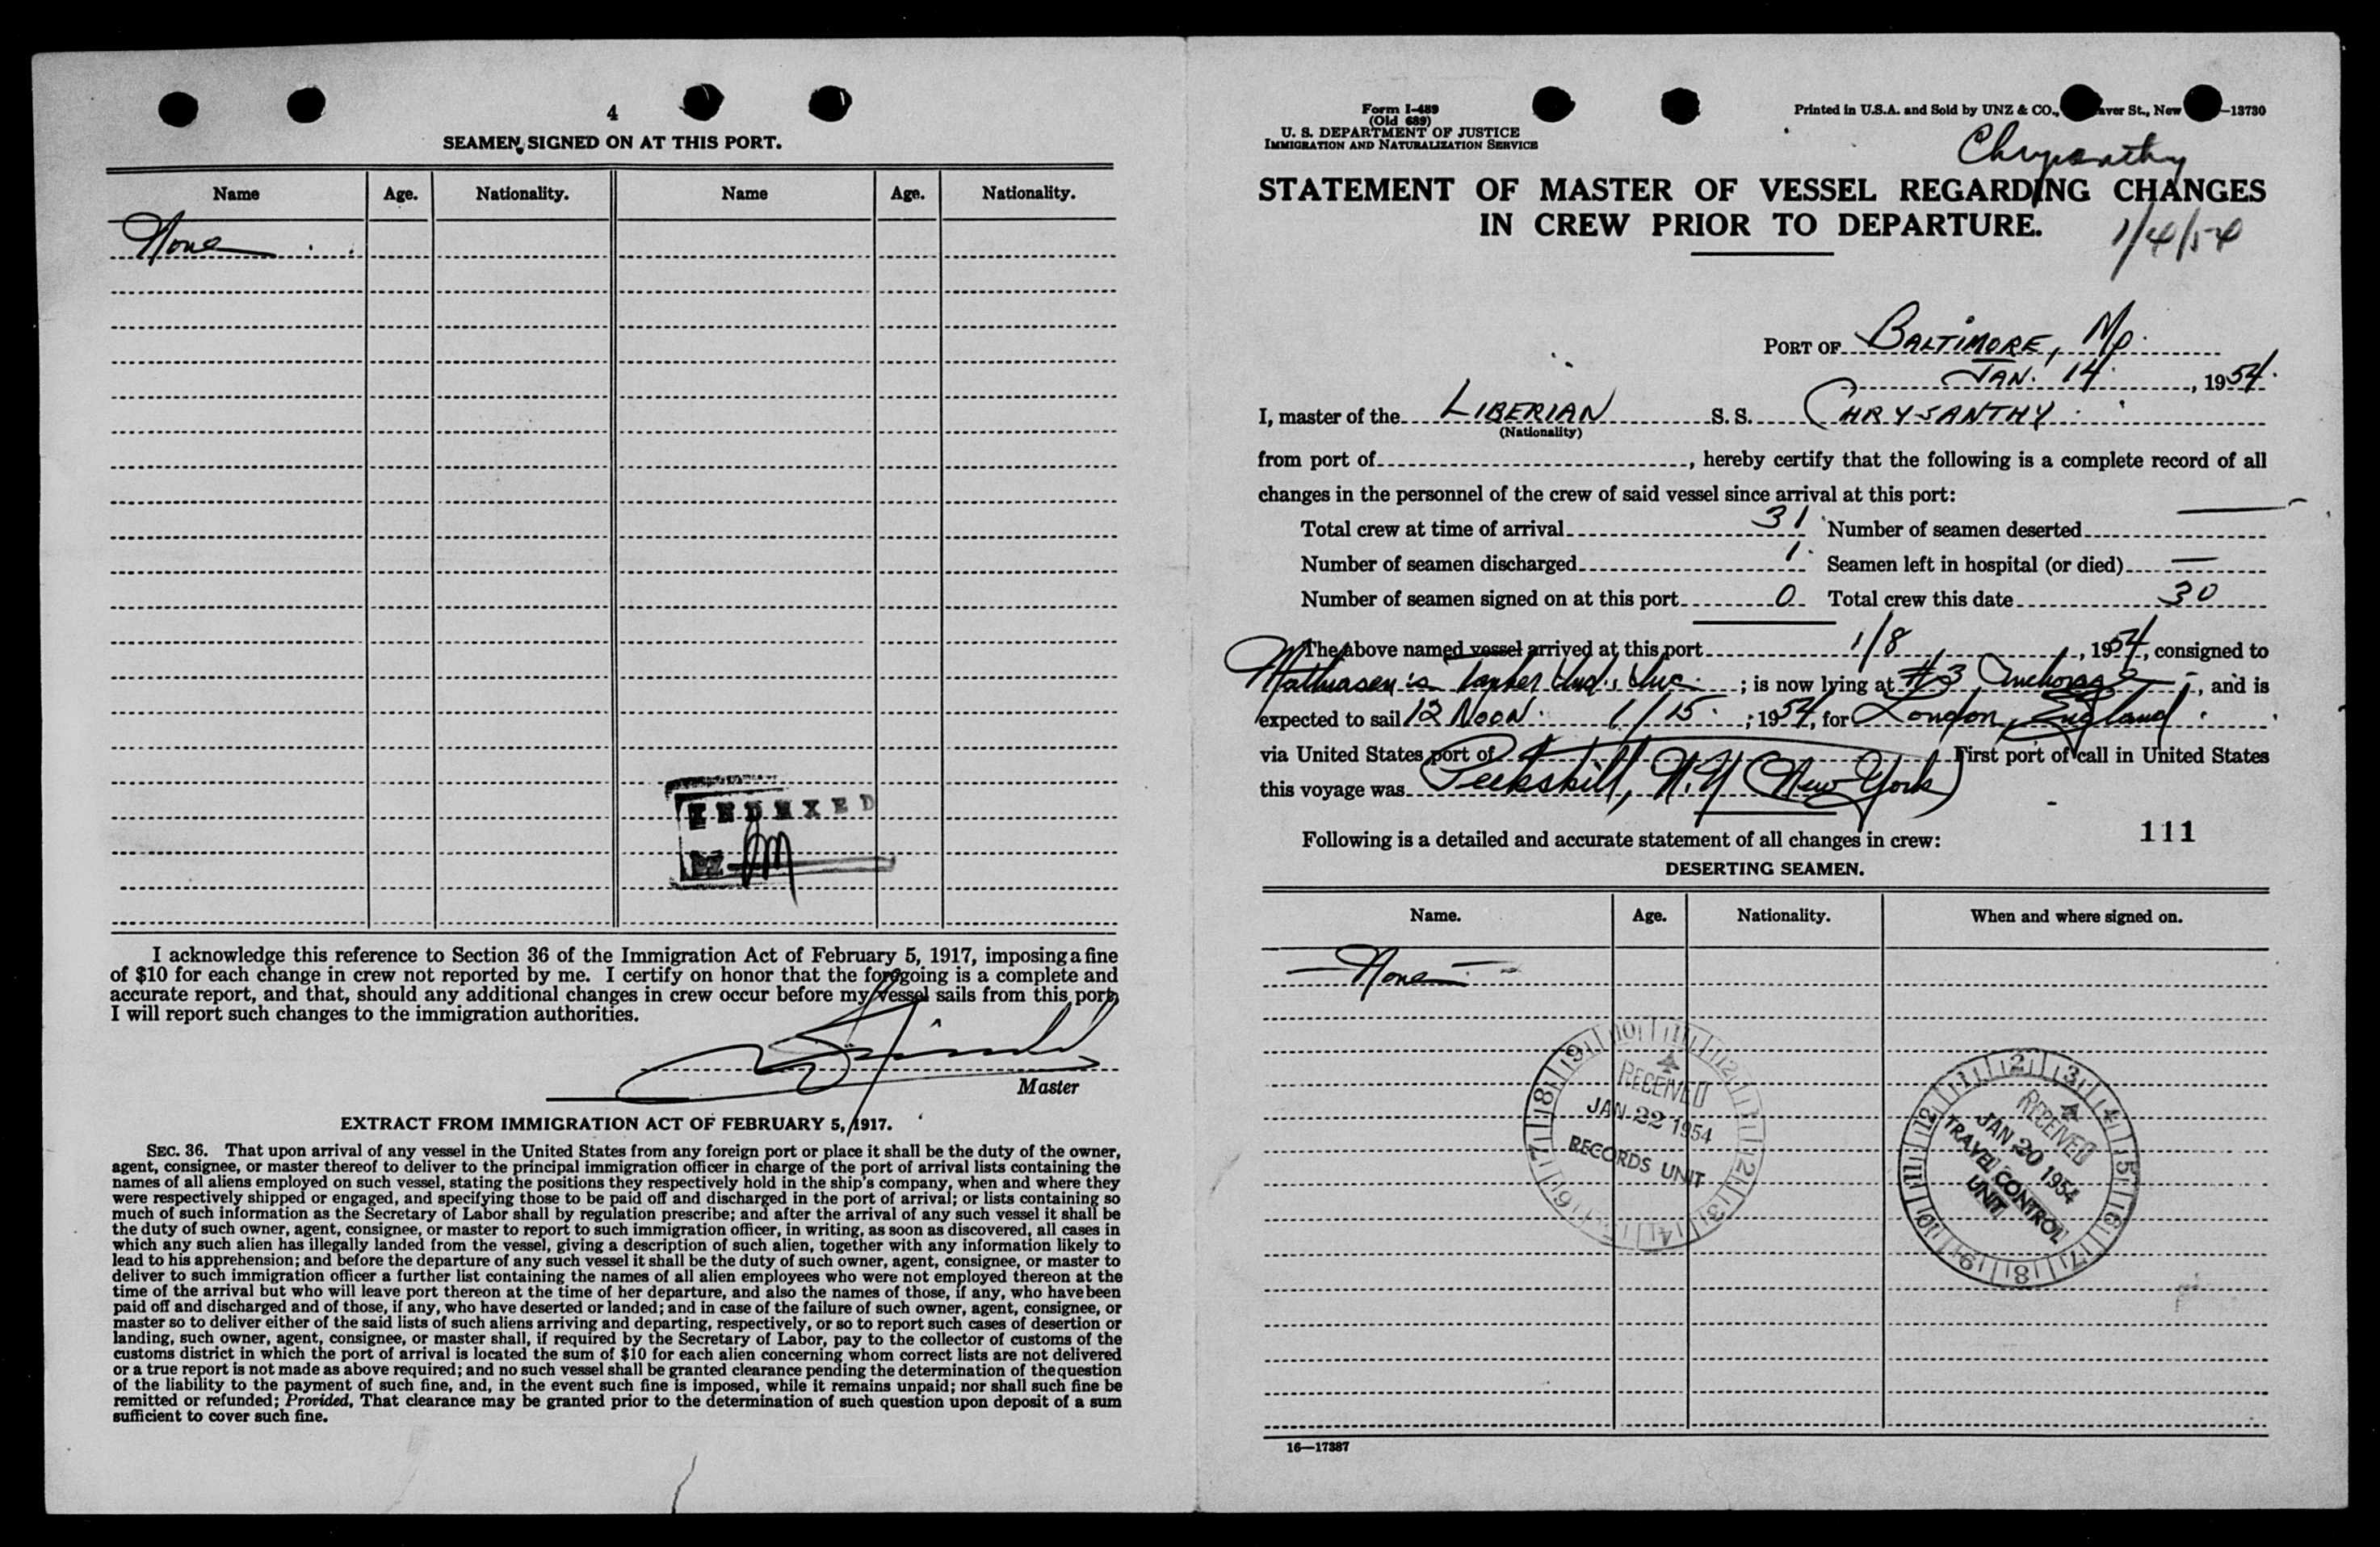 4
SEAMEN SIGNED ON AT THIS PORT.
Name Age. Nationality. Name Age. Nationality.
None
INDEXED
I acknowledge this reference to Section 36 of the Immigration Act of February 5, 1917, imposing a fine
of $10 for each change in crew not reported by me. I certify on honor that the foregoing is a complete and
accurate report, and that, should any additional changes in crew occur before my vessel sails from this port,
I will report such changes to the immigration authorities.
Master
EXTRACT FROM IMMIGRATION ACT OF FEBRUARY 5, 1917.
SEC. 36. That upon arrival of any vessel in the United States from any foreign port or place it shall be the duty of the owner,
agent, consignee, or master thereof to deliver to the principal immigration officer in charge of the port of arrival lists containing the
names of all aliens employed on such vessel, stating the positions they respectively hold in the ship's company, when and where they
were respectively shipped or engaged, and specifying those to be paid off and discharged in the port of arrival; or lists containing so
much of such information as the Secretary of Labor shall by regulation prescribe; and after the arrival of any such vessel it shall be
the duty of such owner, agent, consignee, or master to report to such immigration officer, in writing, as soon as discovered, all cases in
which any such alien has illegally landed from the vessel, giving a description of such alien, together with any information likely to
lead to his apprehension; and before the departure of any such vessel it shall be the duty of such owner, agent, consignee, or master to
deliver to such immigration officer a further list containing the names of all alien employees who were not employed thereon at the
time of the arrival but who will leave port thereon at the time of her departure, and also the names of those, if any, who have been
paid off and discharged and of those, if any, who have deserted or landed; and in case of the failure of such owner, agent, consignee, or
master so to deliver either of the said lists of such aliens arriving and departing, respectively, or so to report such cases of desertion or
landing, such owner, agent, consignee, or master shall, if required by the Secretary of Labor, pay to the collector of customs of the
customs district in which the port of arrival is located the sum of $10 for each alien concerning whom correct lists are not delivered
or a true report is not made as above required; and no such vessel shall be granted clearance pending the determination of the question
of the liability to the payment of such fine, and, in the event such fine is imposed, while it remains unpaid; nor shall such fine be
remitted or refunded; Provided, That clearance may be granted prior to the determination of such question upon deposit of a sum
sufficient to cover such fine.
Form I-489
(Old 689)
U. S. DEPARTMENT OF JUSTICE
IMMIGRATION AND NATURALIZATION SERVICE
Printed in U.S.A. and Sold by UNZ & CO., aver St., New —13730
Chrysanthy
STATEMENT OF MASTER OF VESSEL REGARDING CHANGES
IN CREW PRIOR TO DEPARTURE.
1/4/54
PORT OF BALTIMORE, MD.
JAN. 14, 1954.
I, master of the LIBERIAN S. S. CHRYSANTHY
(Nationality)
from port of , hereby certify that the following is a complete record of all
changes in the personnel of the crew of said vessel since arrival at this port:
Total crew at time of arrival 31 Number of seamen deserted —
Number of seamen discharged 1 Seamen left in hospital (or died) —
Number of seamen signed on at this port 0 Total crew this date 30
The above named vessel arrived at this port 1/8, 1954, consigned to
Mathiasen's Tanker Ind., Inc. ; is now lying at #3 Anchorage, and is
expected to sail 12 NOON 1/15 ; 1954, for London, England
via United States port of First port of call in United States
this voyage was Peekskill, N.Y (New York)
Following is a detailed and accurate statement of all changes in crew: 111
DESERTING SEAMEN.
Name. Age. Nationality. When and where signed on.
— None —
RECEIVED
JAN 22 1954
RECORDS UNIT
RECEIVED
JAN 20 1954
TRAVEL CONTROL
UNIT
16—17387